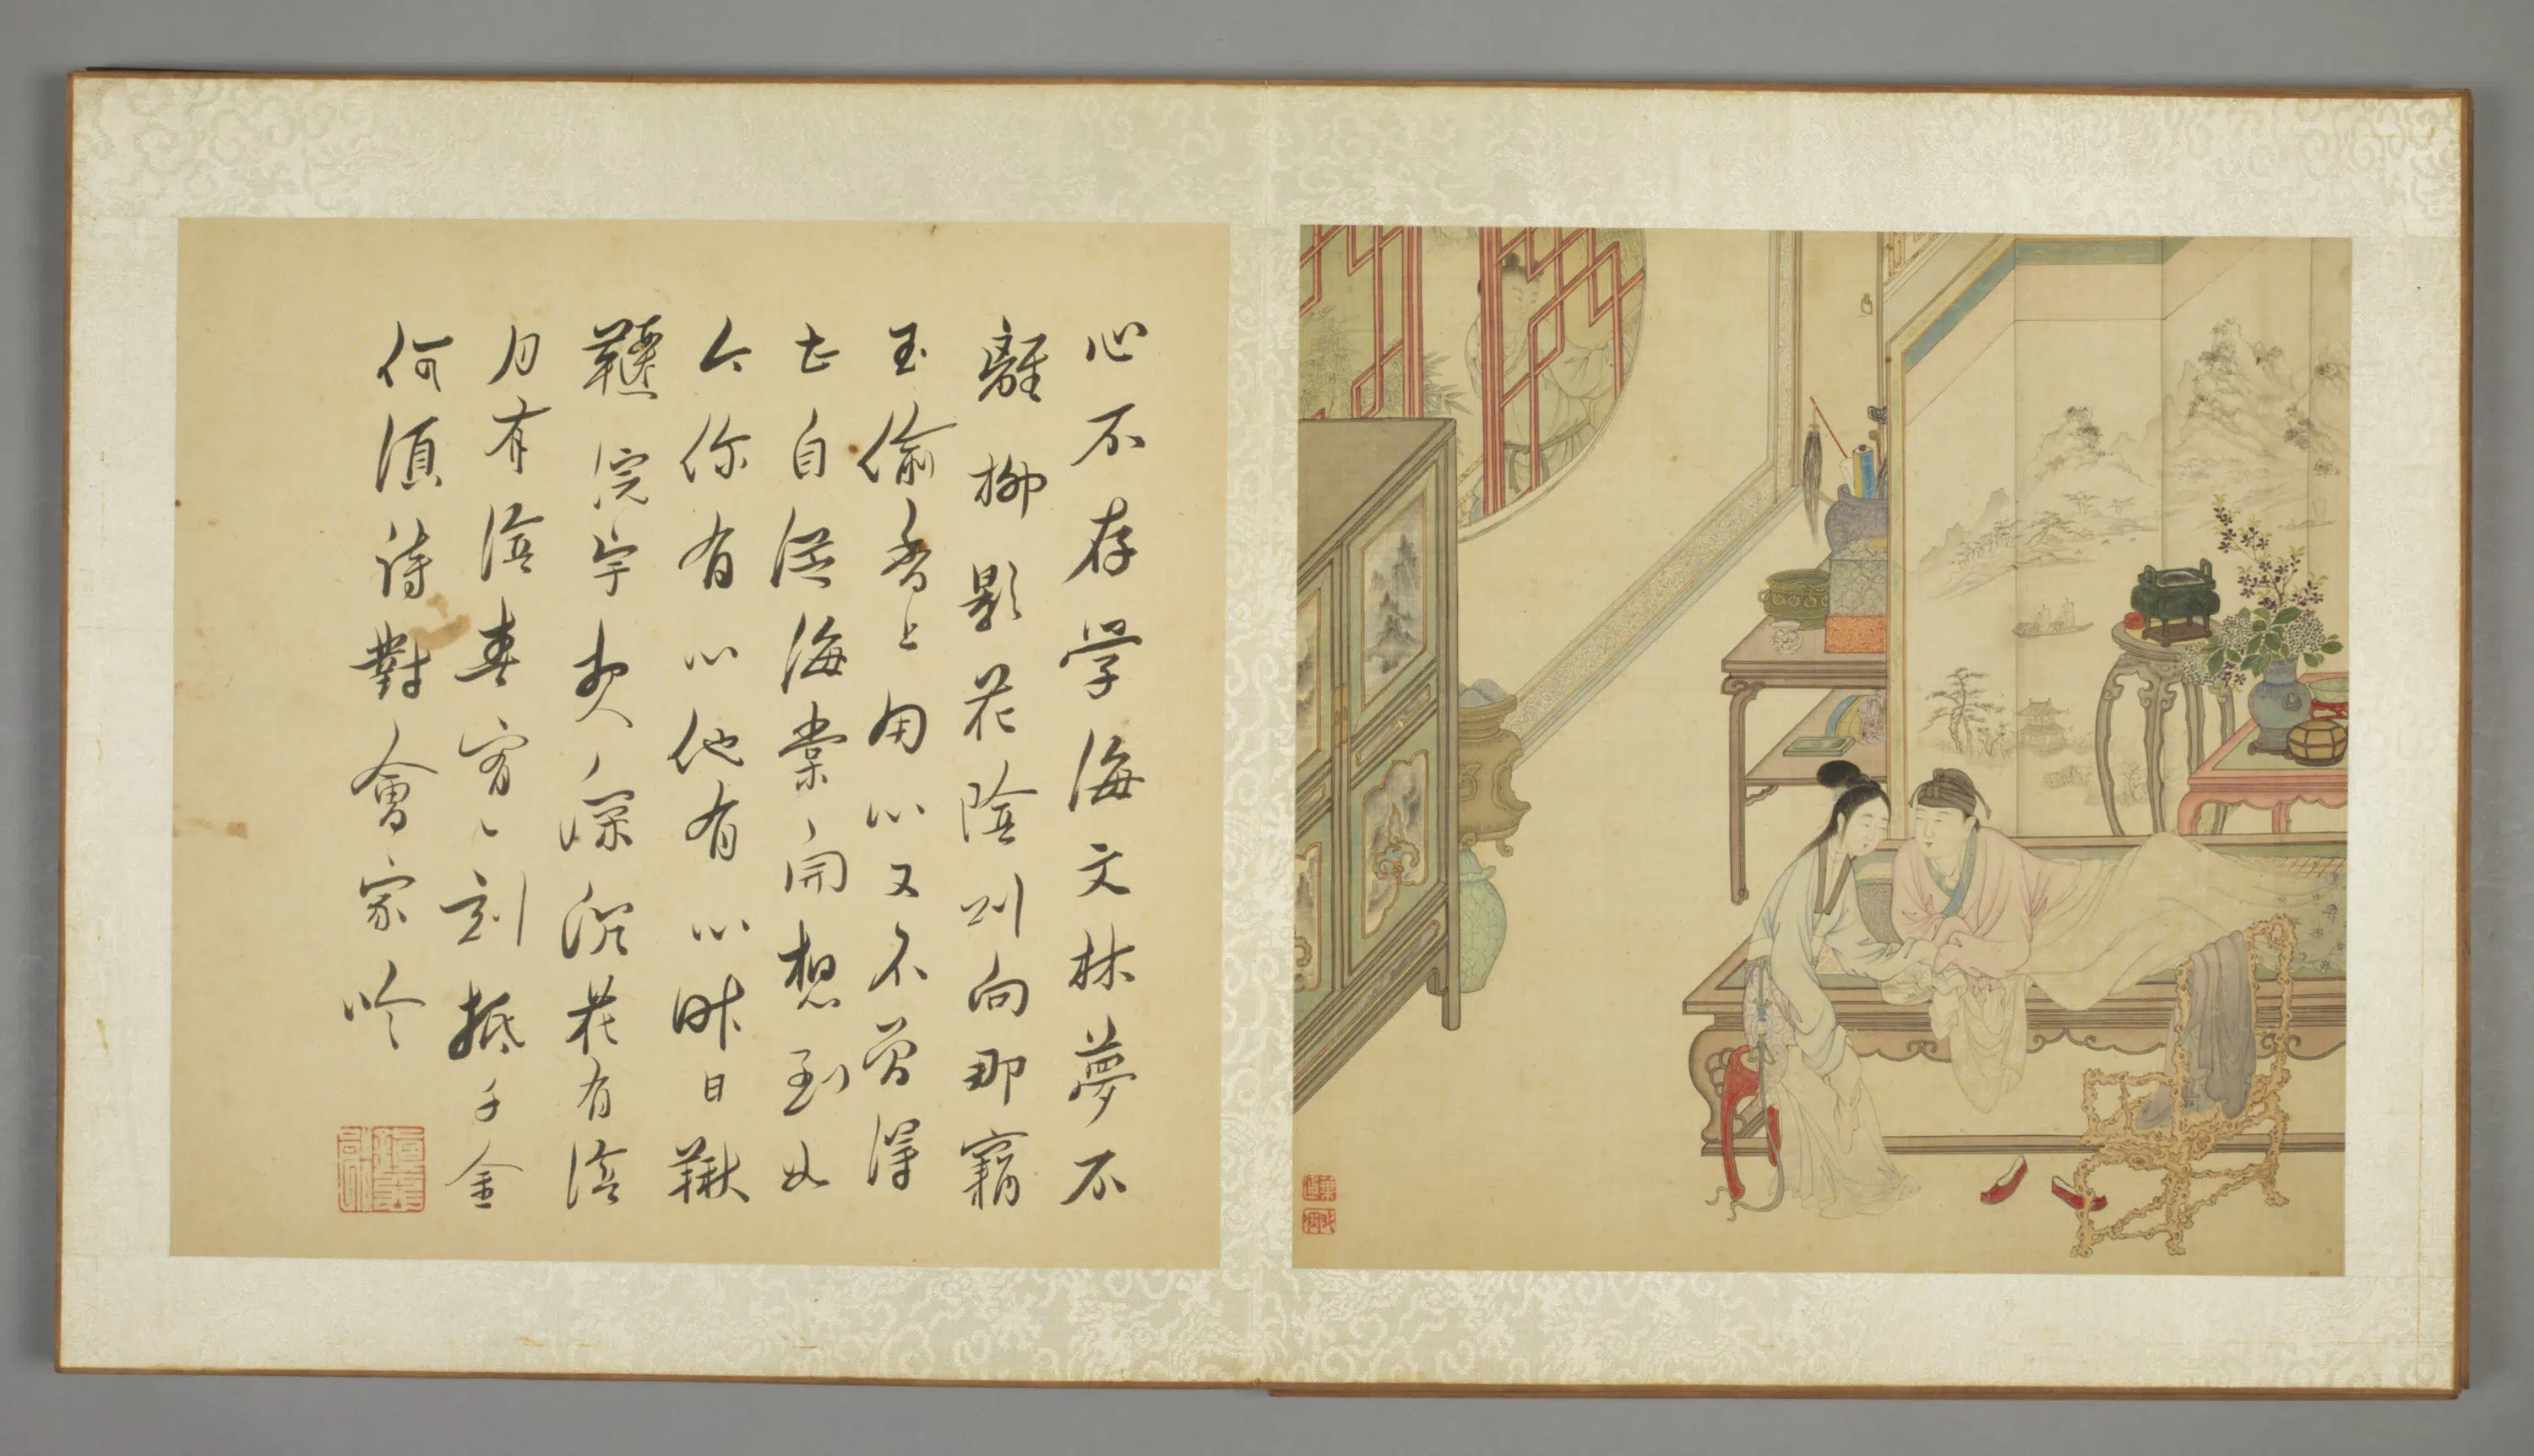 心不存学海文林夢不
離柳影花陰則向那竊
玉偷香上用心又不曾得
甚自從海棠開想到如
今你有心他有心昨日鞦
韆院宇夜深沉花有陰
月有陰春宵一刻抵千金
何須詩對會家吟